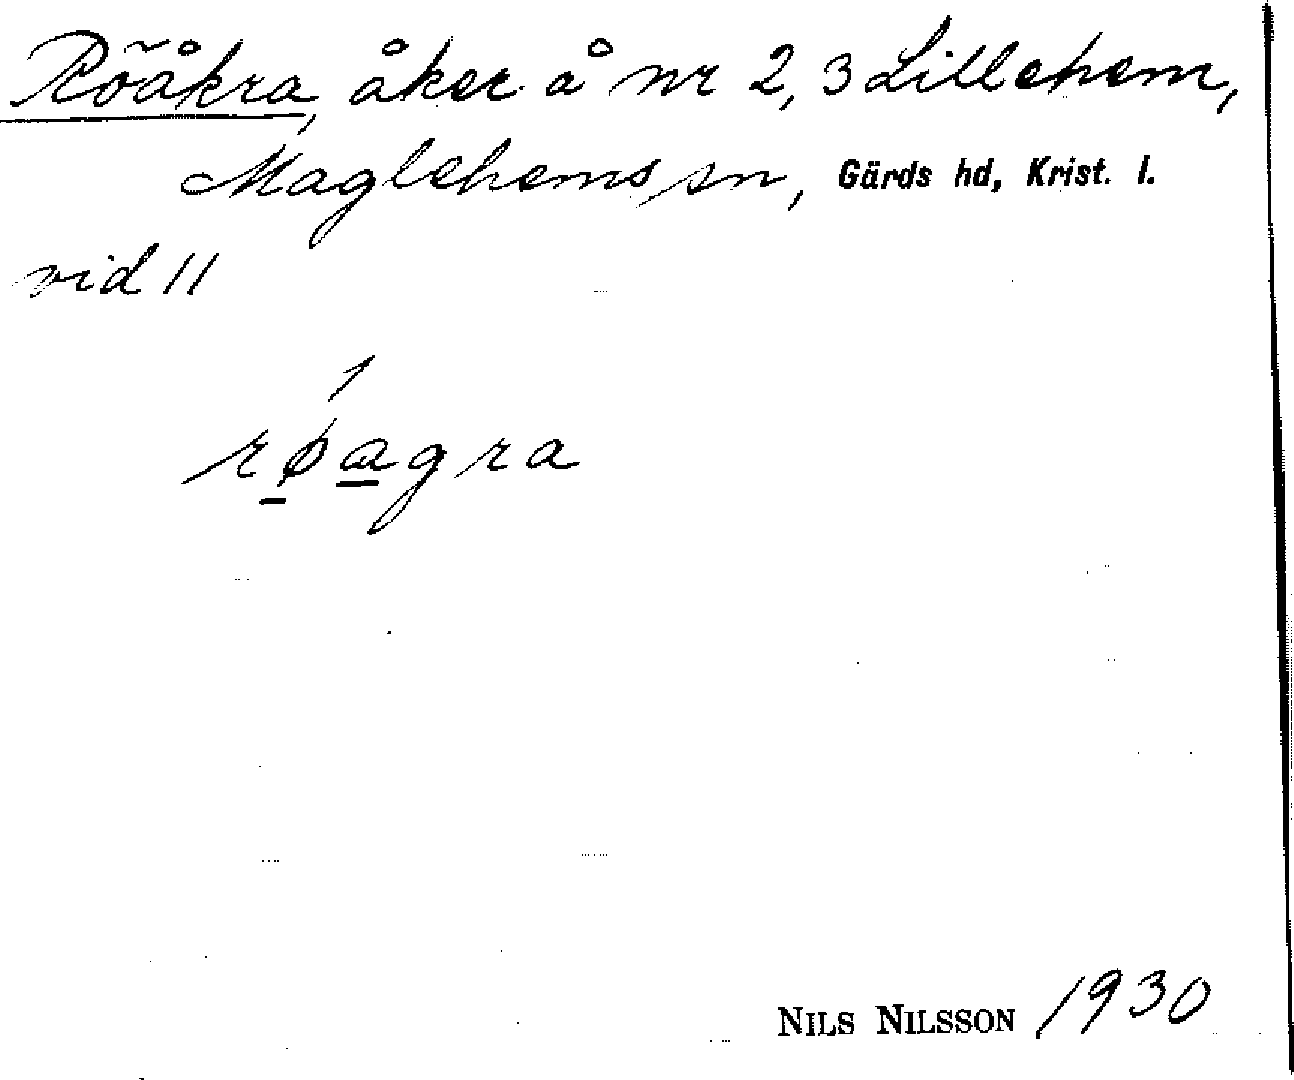 Röåkra, åker å nr 2, 3 Lillehem,
Maglehems sn, Gärds hd, Krist. l.
vid 11
rø̱a̱gra
NILS NILSSON 1930